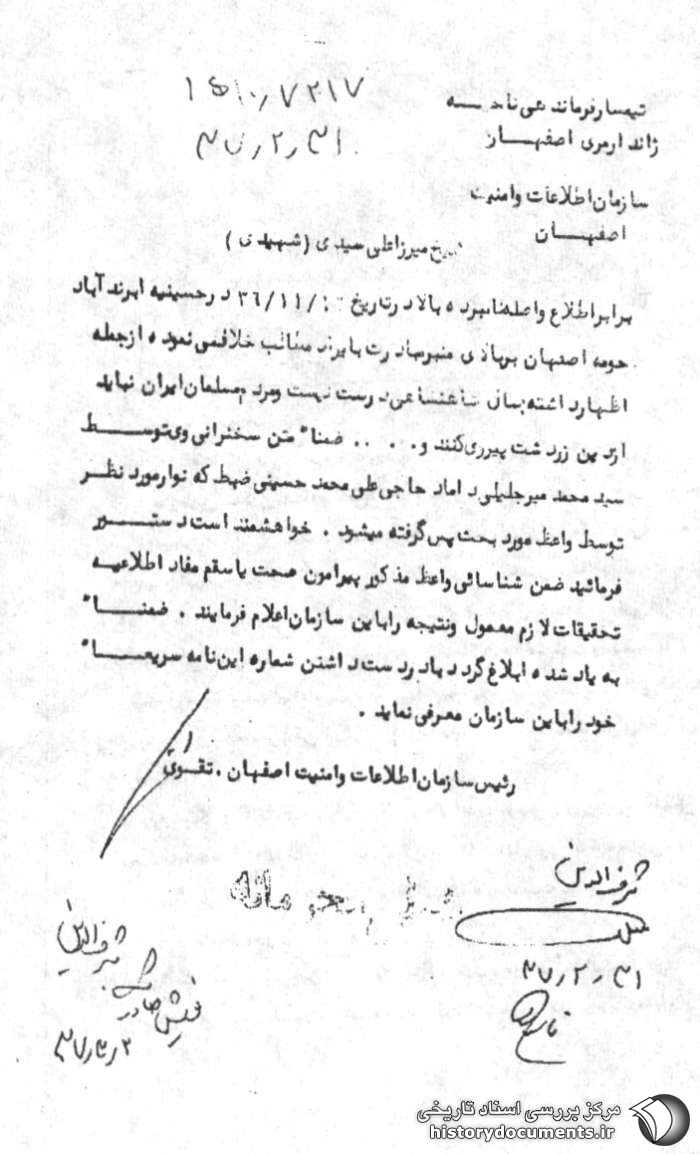 تیمسار فرماندهی ناحیـــه
۱۵۱۰٫۷۲۱۷
ژاندارمری اصفهـــان
۳۷٫۲٫۳۱
سازمان اطلاعات و امنیت
اصفهـــان
شیخ میرزاعلی سیدی (شهیدی)
برابر اطلاع واصله نامبرده بالا در تاریخ ۳۶/۱۱/۱۰ در حسینیه ابرندآباد
حومه اصفهان بر بالای منبر مبادرت بایراد مطالب خلافی نموده از جمله
اظهار داشته سال شاهنشاهی درست نیست و مردم مسلمان ایران نباید
از دین زردشت پیرری کنند و. . . . ضمنا" متن سخنرانی وی توســـط
سید محمد میرجلیلی داماد حاجی علی محمد حسینی ضبط که نوار مورد نظـر
توسط واعظ مورد بحث پس گرفته میشود . خواهشمند است دستـــور
فرمائید ضمن شناسائی واعظ مذکور پیرامون صحت یا سقم مفاد اطلاعیـه
تحقیقات لازم معمول ونتیجه را باین سازمان اعلام فرمایند . ضمنـــا"
به یاد شده ابلاغ گردد با در دست داشتن شماره این نامه سریعـــا"
خود را باین سازمان معرفی نماید .
رئیس سازمان اطلاعات و امنیت اصفهان . تقـوی
خیلی محرمانه
شرف الدین
۳۷٫۲٫۳۱
شرف الدین
۳۷٫۳٫۲
مرکز بررسی اسناد تاریخی
historydocuments.ir